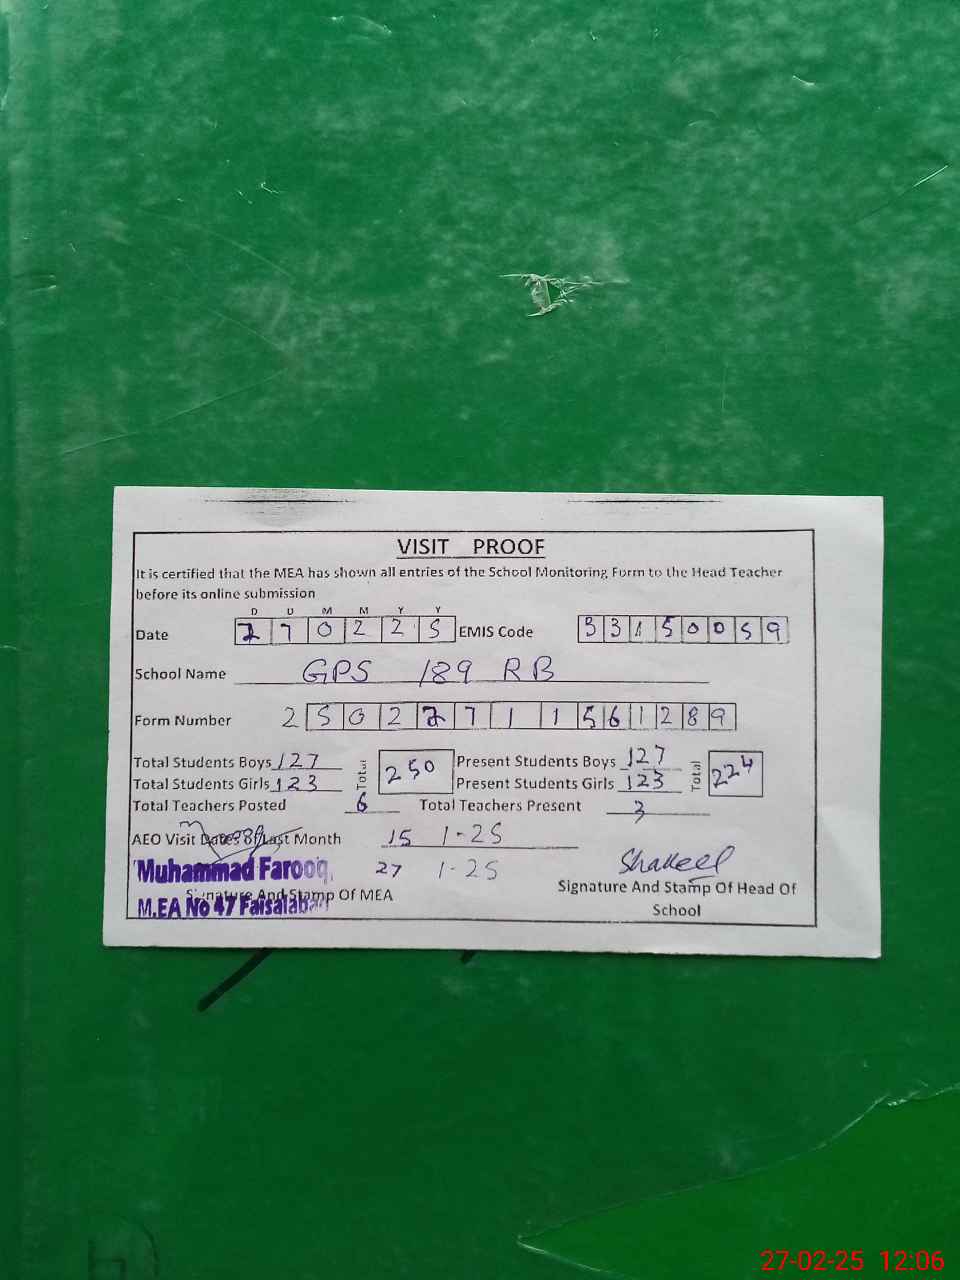 VISIT PROOF
It is certified that the MEA has shown all entries of the School Monitoring Form to the Head Teacher
before its online submission
D D M M Y Y
Date 270225 EMIS Code 33150059
School Name GPS 189 RB
Form Number 25022711561289
Total Students Boys 127 Total 250 Present Students Boys 127 Total 224
Total Students Girls 123 Present Students Girls 123
Total Teachers Posted 6 Total Teachers Present 3
AEO Visit Dates of Last Month 15 1-25
Muhammad Farooq 27 1-25 Shakeel
Signature And Stamp Of MEA Signature And Stamp Of Head Of
M.EA No 47 Faisalabad School
27-02-25 12:06